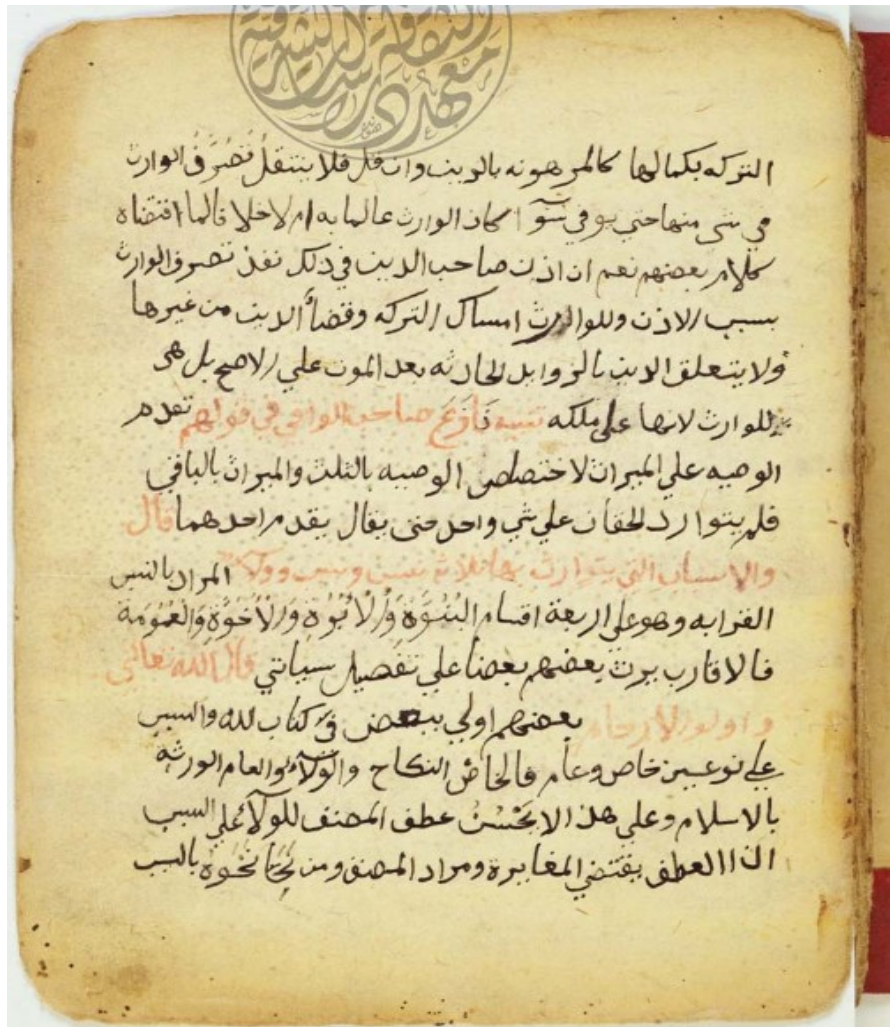 معهد الثقافة والدراسات الشرقية
التركه بكمالها كالمرهونه بالدين وان قل فلا ينتقل تصرف الوارث
في شي منها حتي يوفي سوآ اكان الوارث عالما به ام لا خلافا لما اقتضاه
كلام بعضهم نعم ان اذن صاحب الدين في ذلك نفذ تصرف الوارث
بسبب الاذن وللوارث امساك التركه وقضأ الدين من غيرها
ولا يتعلق الدين بالزوايد الحادثه بعد الموت علي الاصح بل هي
للوارث لانها علي ملكه تنبيه نازع صاحب الوافي في قولهم تقدم
الوصيه علي الميراث لاختصاص الوصيه بالثلث والميراث بالباقي
فلم يتوارد الحقان علي شي واحد حتي يقال يقدم احدهما قال
والاسباب التي يتوارث بها ثلاثه نسب وسبب وولاء المراد بالنسب
القرابه وهو علي اربعة اقسام البُنُوَّةِ وَالْأُبُوَّةِ وَالْأُخُوَّةِ وَالْعُمُومَة
فالاقارب يرث بعضهم بعضا علي تفصيل سياتي قال الله تعالي
واولوا الارحام بعضهم اولي ببعض في كتاب لله والسبب
علي نوعين خاص وعام فالخاص النكاح والولآء والعام الورثه
بالاسلام وعلي هذا لا يَحْسُنُ عطف المصنف للولآء علي السبب
اذ العطف يقتضي المغايرة ومراد المصنف ومن نَحَا نَحْوَهُ بالسبب